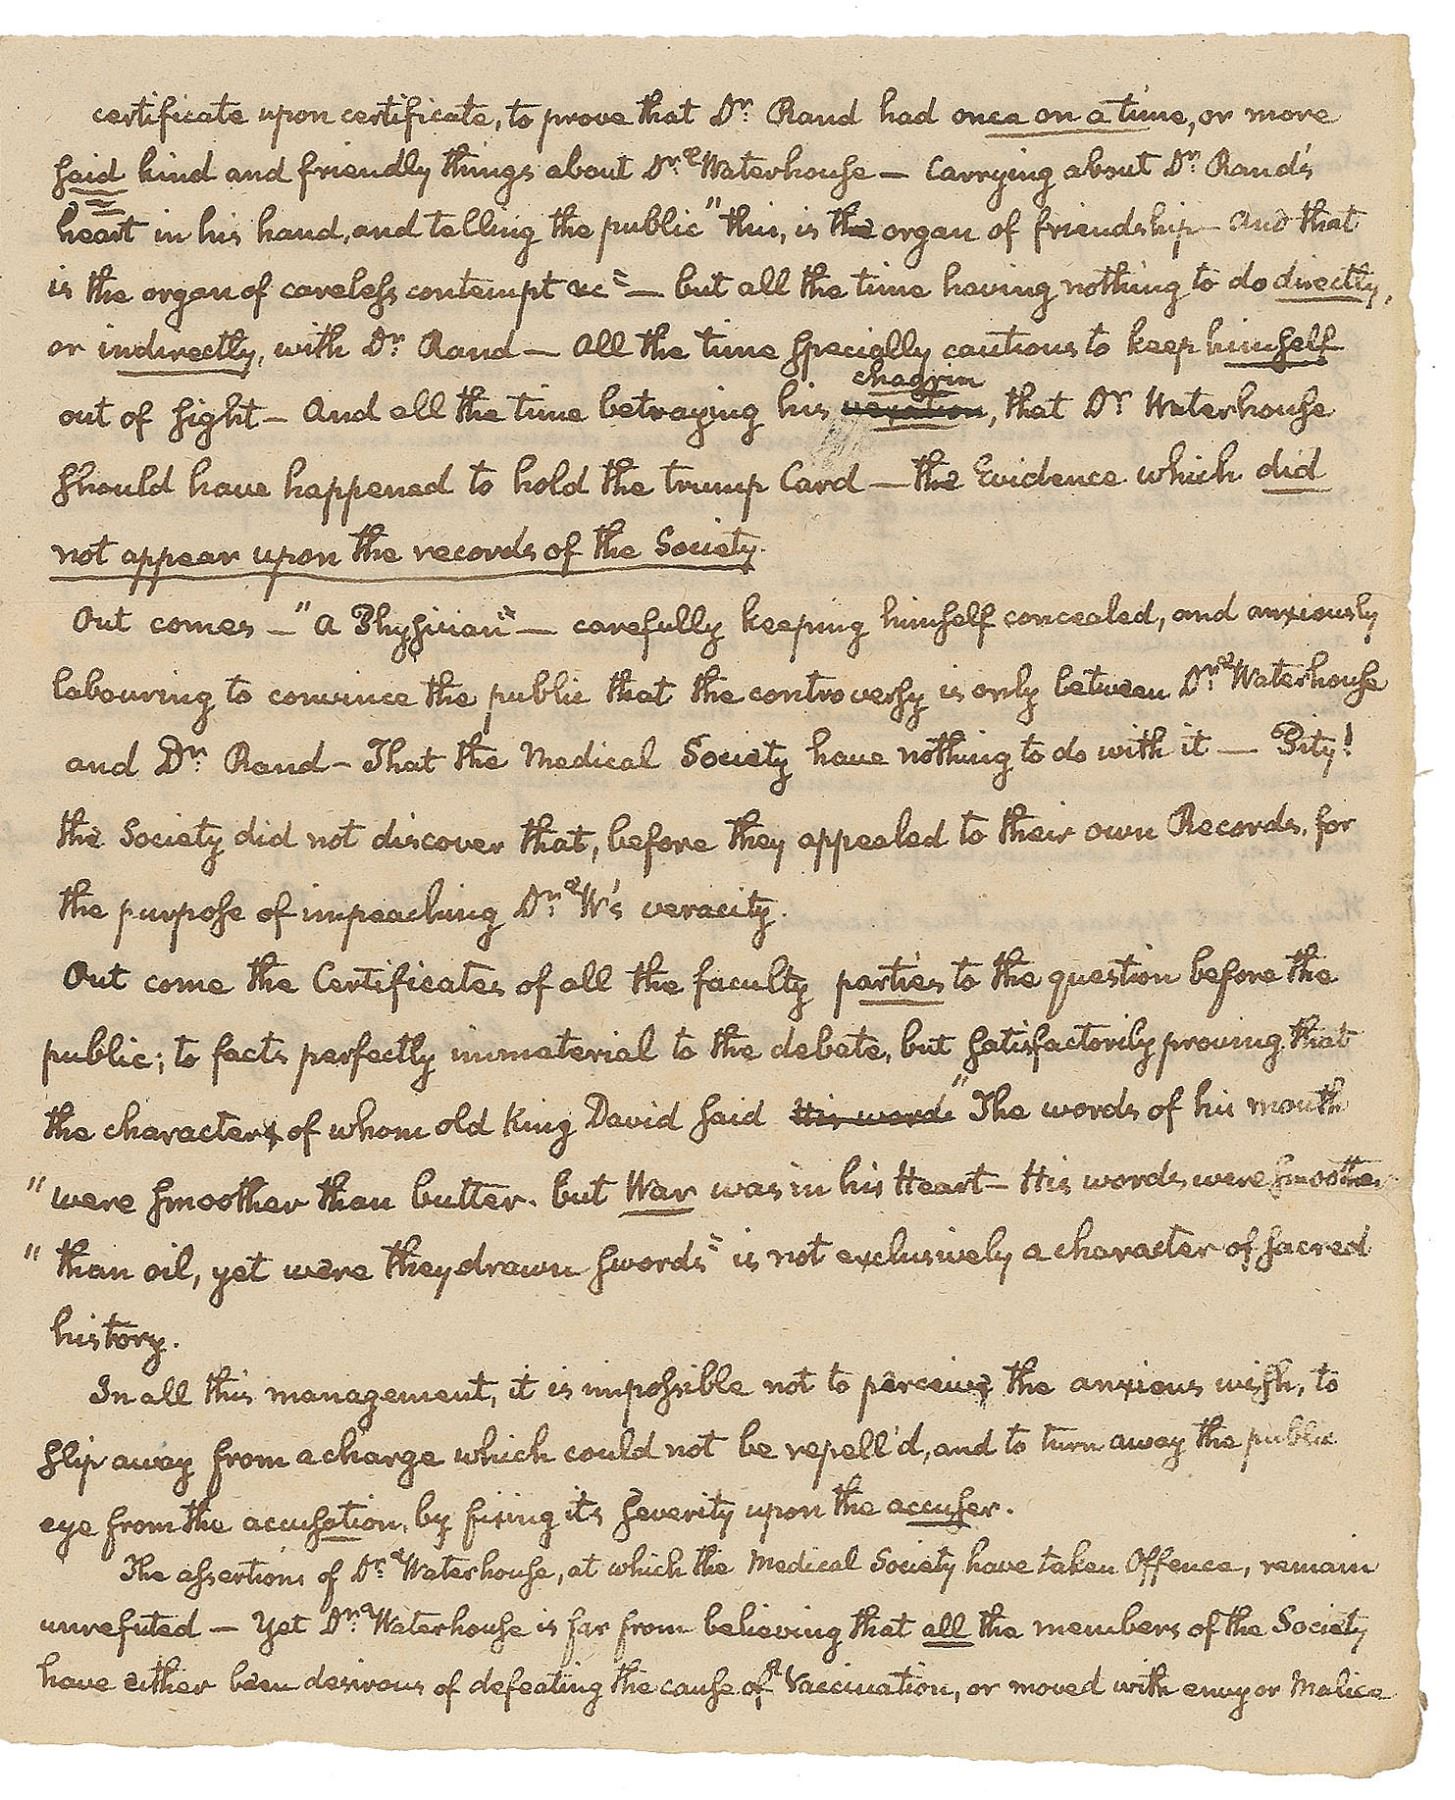 certificate upon certificate, to prove that Dr. Rand had once on a time, or more
said kind and friendly things about Dr. Waterhouse — Carrying about Dr. Rand's
heart in his hand, and telling the public "this, is the organ of friendship — And that
is the organ of careless contempt &c" — but all the time having nothing to do directly,
or indirectly, with Dr. Rand — All the time specially cautious to keep himself
out of sight — And all the time betraying his vexation chagrin, that Dr Waterhouse
should have happened to hold the trump Card — the Evidence which did
not appear upon the records of the Society.
Out comes — "A Physician" — carefully keeping himself concealed, and anxiously
labouring to convince the public that the controversy is only between Dr. Waterhouse
and Dr. Rand — That the Medical Society have nothing to do with it — Pity!
the Society did not discover that, before they appealed to their own Records, for
the purpose of impeaching Dr. W's veracity.
Out come the Certificates of all the faculty parties to the question before the
public; to facts perfectly immaterial to the debate, but satisfactorily proving that
the character of whom old King David said His words "The words of his mouth
"were smoother than butter, but War was in his Heart — His words were smoother
"than oil, yet were they drawn swords" is not exclusively a character of sacred
history.
In all this management, it is impossible not to perceive the anxious wish, to
slip away from a charge which could not be repell'd, and to turn away the public
eye from the accusation, by fixing its severity upon the accuser.
The assertions of Dr. Waterhouse, at which the Medical Society have taken Offence, remain
unrefuted — Yet Dr. Waterhouse is far from believing that all the members of the Society
have either been desirous of defeating the cause of Vaccination, or moved with envy or Malice